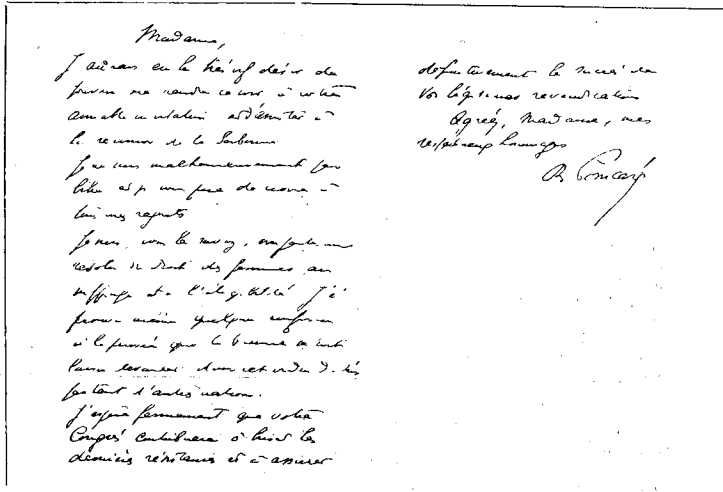 Madame,
J'aurais eu le très vif désir de
pouvoir me rendre ce soir à votre
aimable invitation et d'assister à
la réunion de la Sorbonne
Je ne suis malheureusement pas
libre et je vous prie de croire à
tous mes regrets
Je suis, vous le savez, un partisan
résolu du droit des femmes au
suffrage et à l'éligibilité J'
prouve même quelque confusion
à la pensée que la France
laisse devancer dans cet ordre d'idées
par tant d'autres nations.
J'espère fermement que votre
Congrès contribuera à briser les
dernières résistances et à assurer
définitivement le succès de
vos légitimes revendications
Agréez, Madame, mes
respectueux hommages
R Poincaré